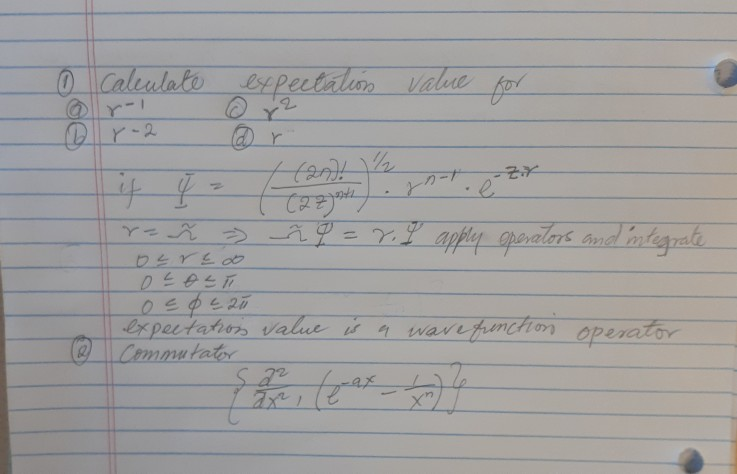 ① Calculate expectation value for
ⓐ r-1 ⓒ r²
ⓑ r-2 ⓓ r
if Ψ = ((2n)! / (2z)ⁿ⁺¹)^1/2 · rⁿ⁻¹ · e^-z·r
r = r̃ ⇒ r̃ Ψ = r·Ψ apply operators and integrate
0 ≤ r ≤ ∞
0 ≤ θ ≤ π
0 ≤ ϕ ≤ 2π
expectation value is a wavefunction operator
② Commutator
{∂²/∂x², (e^-ax - 1/xⁿ)}